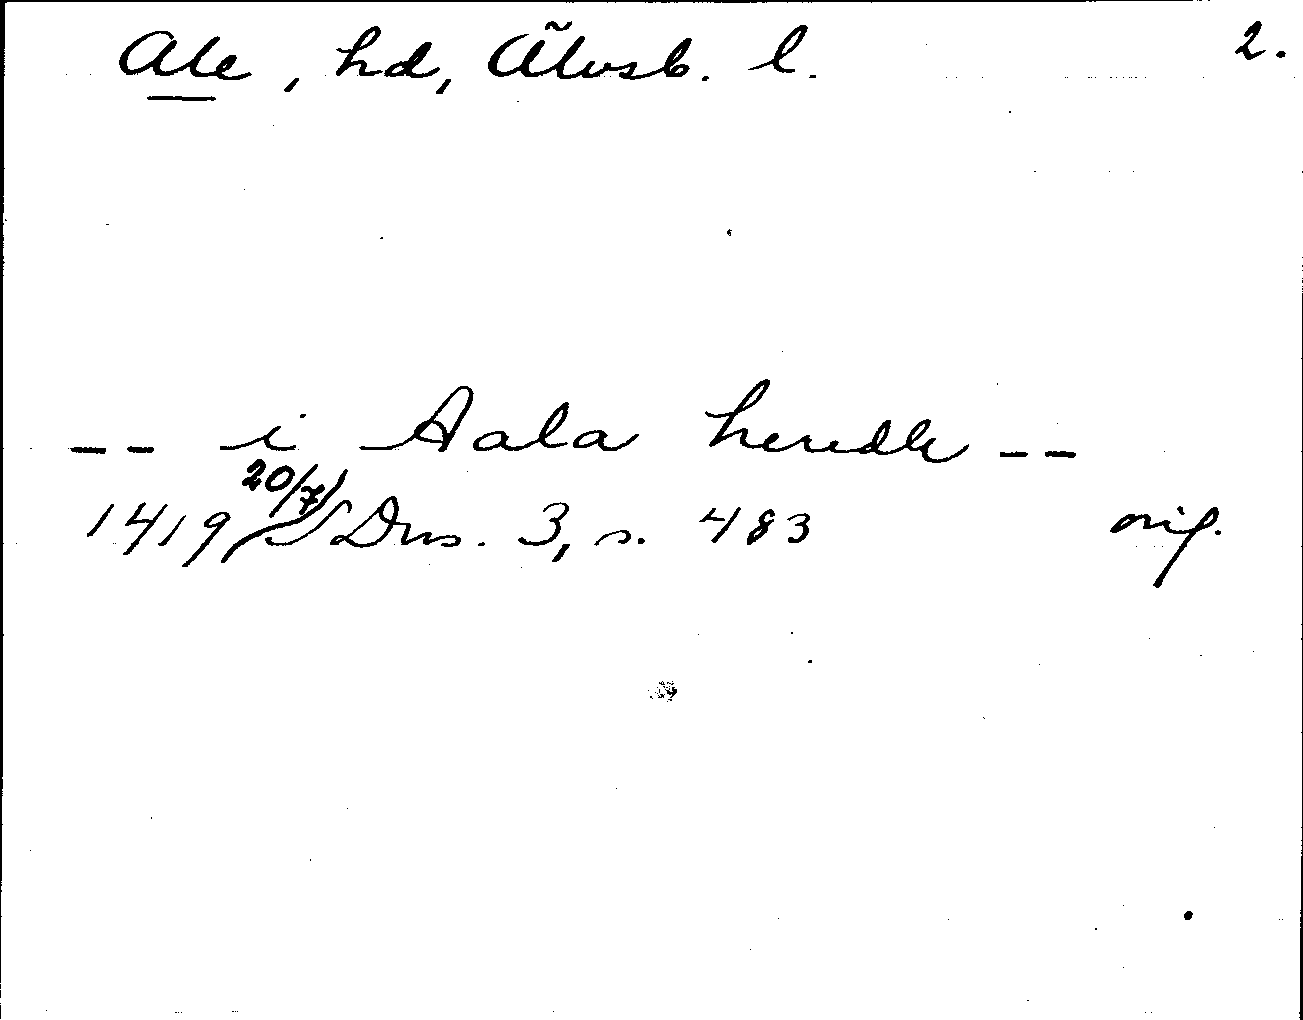 Ale, hd, Älvsb. l. 2.
-- i Aala heredh --
1419 20/7 SDns. 3, s. 483 orig.